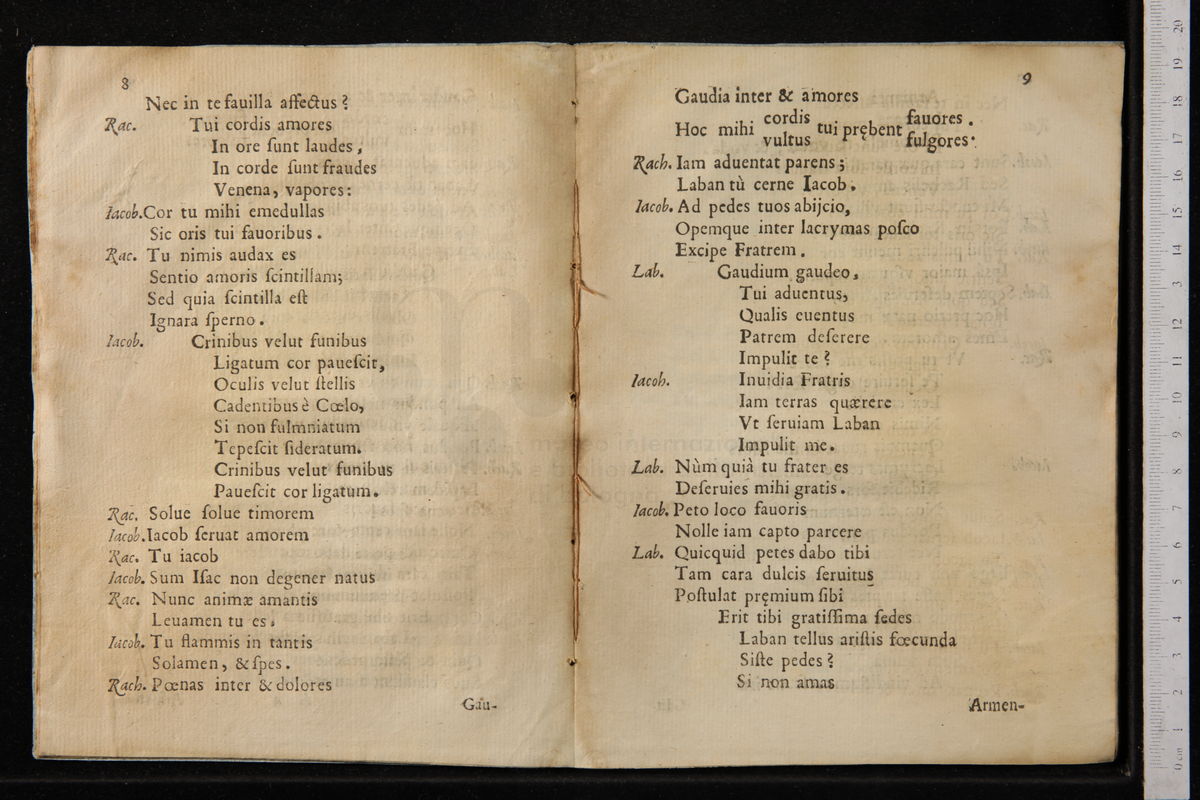 8
Nec in te fauilla affectus ?
Rac. Tui cordis amores
In ore ſunt laudes,
In corde ſunt fraudes
Venena, vapores:
Iacob. Cor tu mihi emedullas
Sic oris tui fauoribus.
Rac. Tu nimis audax es
Sentio amoris ſcintillam;
Sed quia ſcintilla eſt
Ignara ſperno.
Iacob. Crinibus velut funibus
Ligatum cor paueſcit,
Oculis velut ſtellis
Cadentibus è Cœlo,
Si non fulmniatum
Tepeſcit ſideratum.
Crinibus velut funibus
Paueſcit cor ligatum.
Rac. Solue ſolue timorem
Iacob. Iacob ſeruat amorem
Rac. Tu iacob
Iacob. Sum Iſac non degener natus
Rac. Nunc animæ amantis
Leuamen tu es.
Iacob. Tu flammis in tantis
Solamen, & ſpes.
Rach. Pœnas inter & dolores
Gau-
9
Gaudia inter & amores
Hoc mihi cordis vultus tui prębent fauores. fulgores.
Rach. Iam aduentat parens;
Laban tù cerne Iacob.
Iacob. Ad pedes tuos abijcio,
Opemque inter lacrymas poſco
Excipe Fratrem.
Lab. Gaudium gaudeo,
Tui aduentus,
Qualis euentus
Patrem deſerere
Impulit te ?
Iacob. Inuidia Fratris
Iam terras quærere
Vt ſeruiam Laban
Impulit me.
Lab. Nùm quià tu frater es
Deſeruies mihi gratis.
Iacob. Peto loco fauoris
Nolle iam capto parcere
Lab. Quicquid petes dabo tibi
Tam cara dulcis ſeruitus
Poſtulat pręmium ſibi
Erit tibi gratiſſima ſedes
Laban tellus ariſtis fœcunda
Siſte pedes ?
Si non amas
Armen-